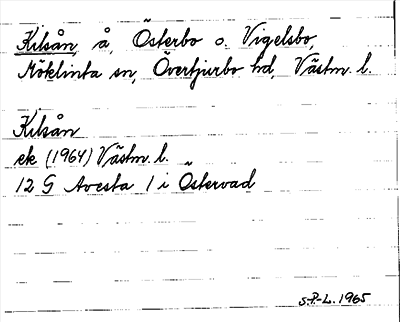 Kilsån, å, Österbo o. Vigelsbo,
Möklinta sn, Övertjurbo hd, Västm. l.
Kilsån
ek (1964) Västm. l.
12 G Avesta 1 i Östervad
S.P-L. 1965